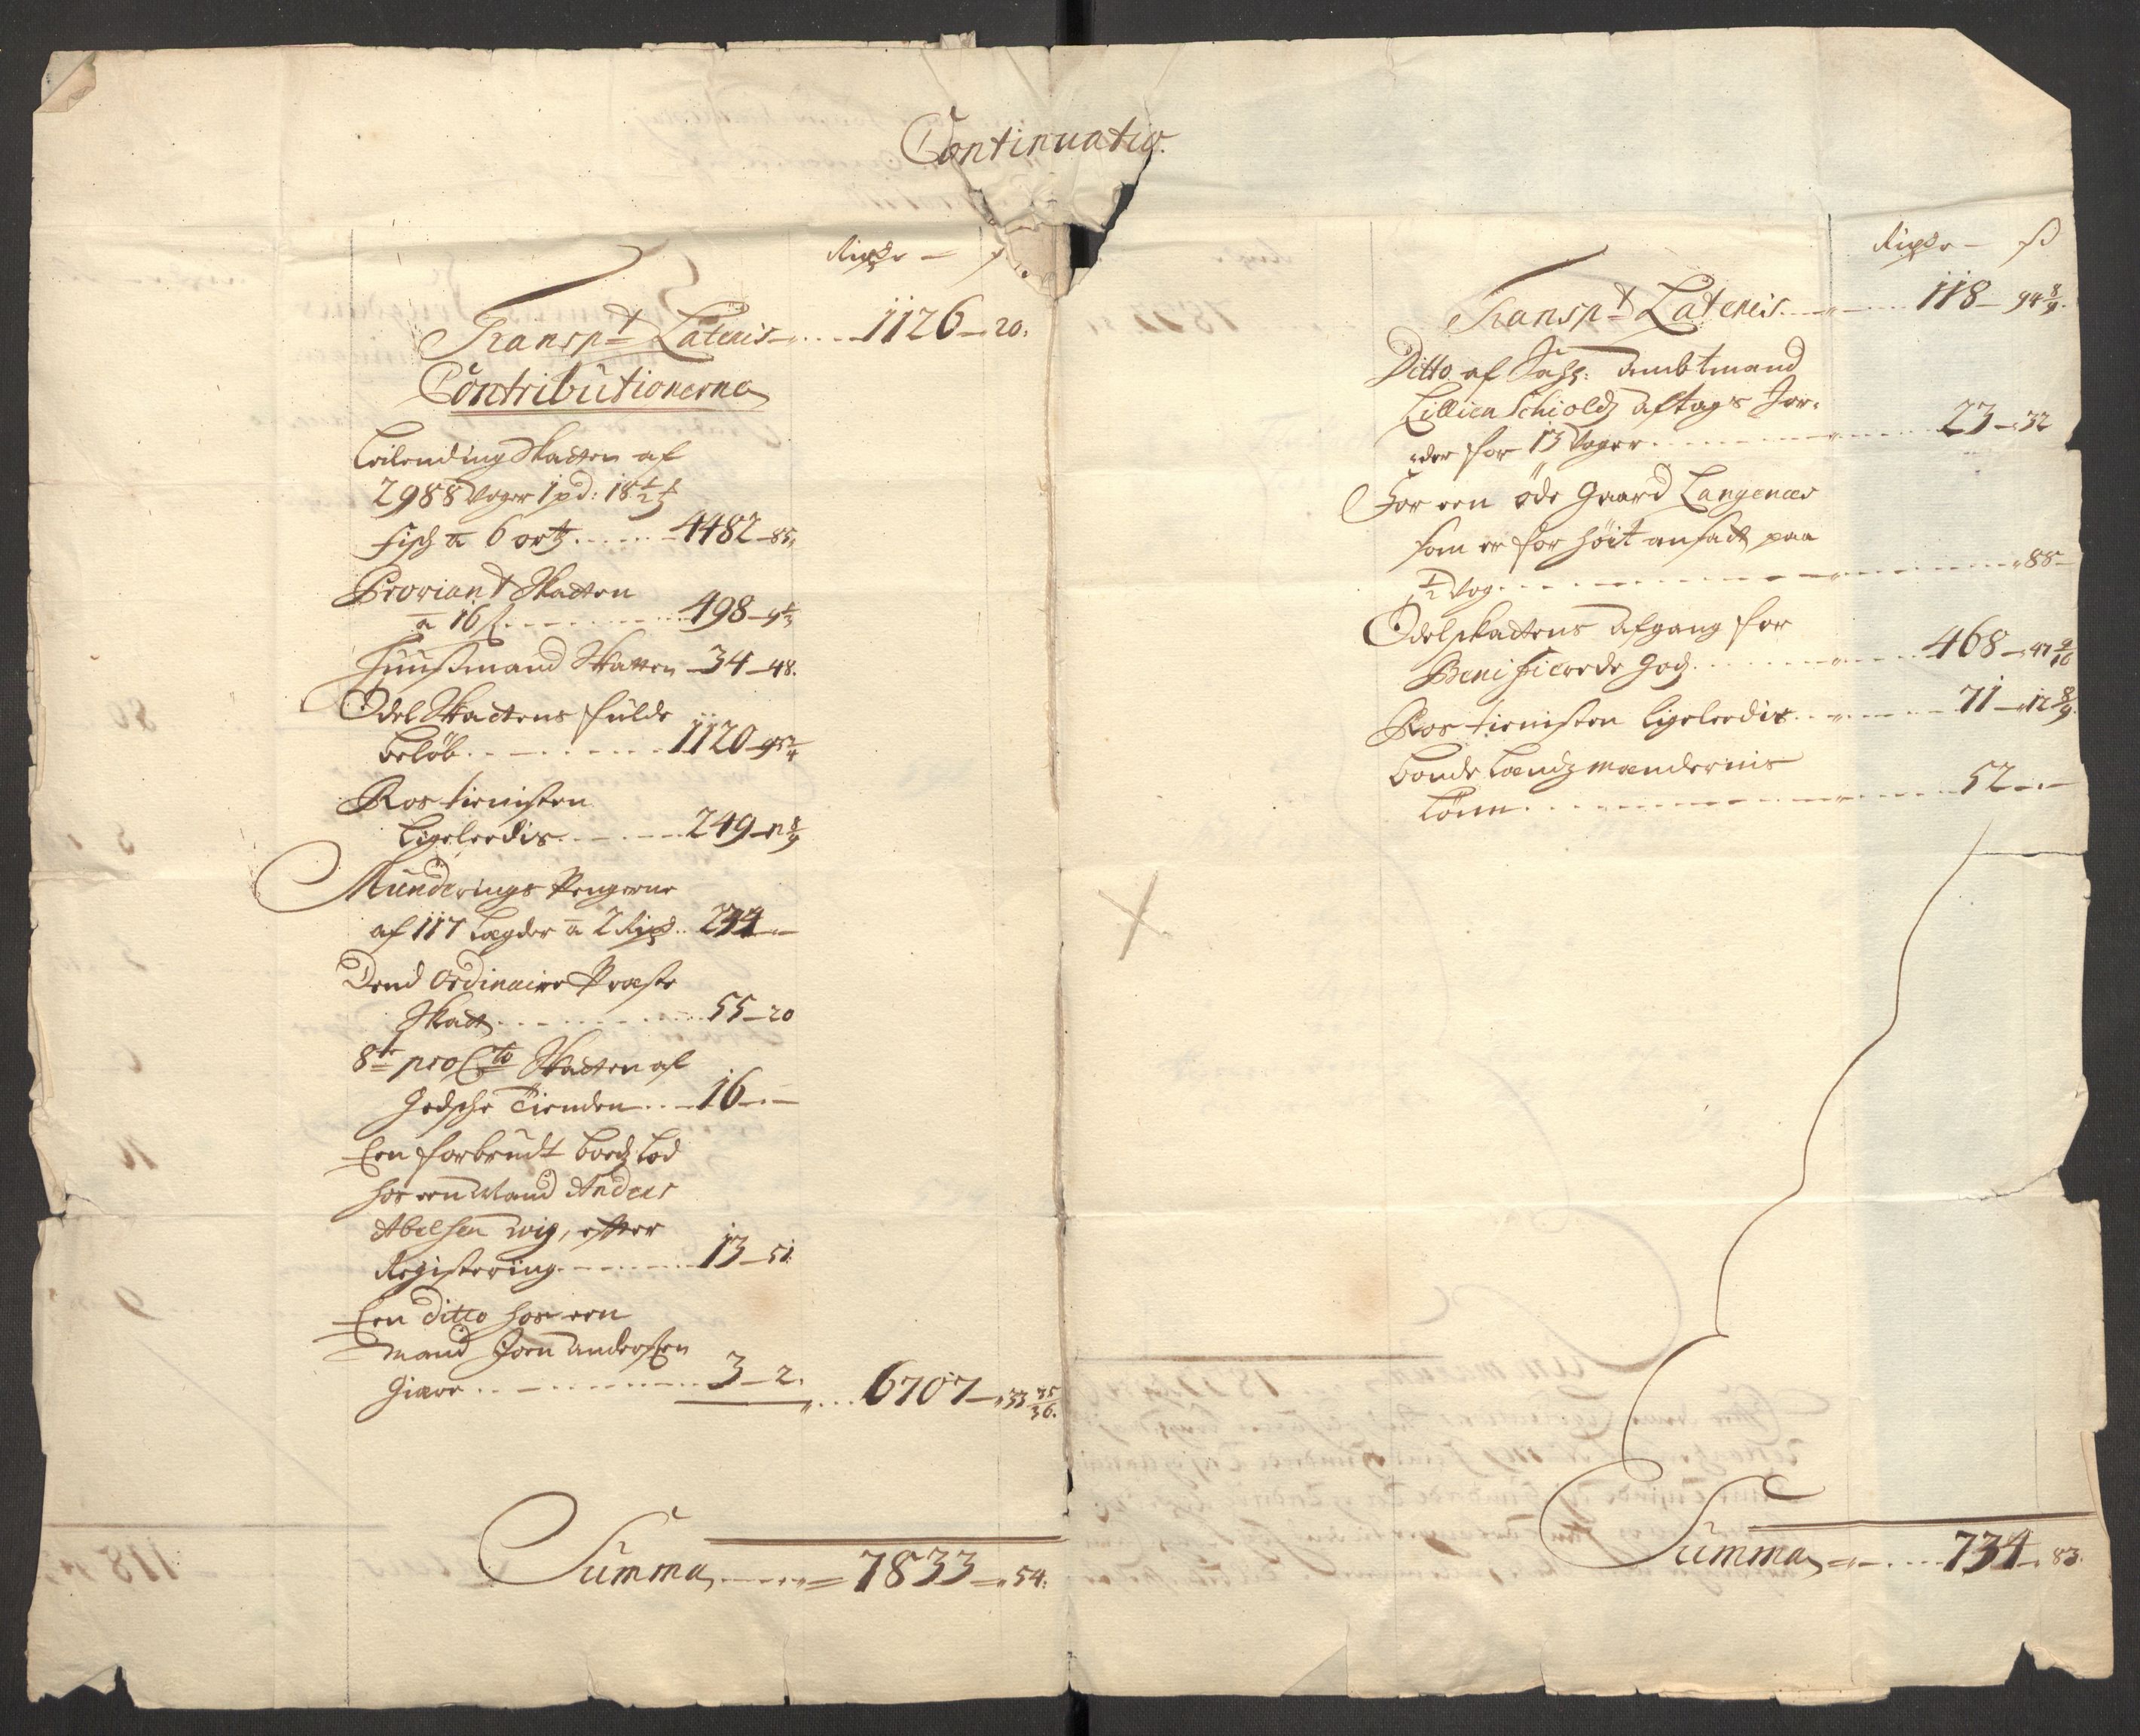 Continuatio.
Rixdr — ß
Transpt Lateris 1126 — 20.
Contributionerne
Leilending Skatten af
2988 Voger 1 pd: 18 1/2 ℔
Fisk a 6 ort 4482 — 85.
Proviant Skatten
a 16 ß 498
Huusmand Skatten 34 — 48.
Odel Skattens fulde
beløb 1120
Ros tienisten
ligeleedis 249
Munderings Pengerne
af 117 Lægder a 2 Rixd. 234 —
Dend Ordinaire Præste
Skatt 55 — 20
8te pro Cto Skatten af
Godsche Tienden 16 —
Een forbrudt Boeslod
hos een Mand Anders
Abelsen Wig, efter
Registering 13 — 51.
Een ditto hos een
Mand Joen Andersen
Giære 3 — 2.
6707 — 33 35/36.
Summa 7833 — 54.
Rixdr — ß
Transpt Lateris 118 — 94 8/9.
Ditto af Sahl: Ambtmand
Lillienschiolds aftags Jor-
der for 13 Voger 23 — 32
For een øde Gaard Langenæs
som er for høit ansatt paa
1/2 Vog 88 —
Odelskattens Afgang for
Benificerede Gods 468 — 47 9/16
Ros tienisten ligeleedis 71 — 12 8/9.
Bonde Landsmændernis
Lønn 52 —
Summa 734 — 83.